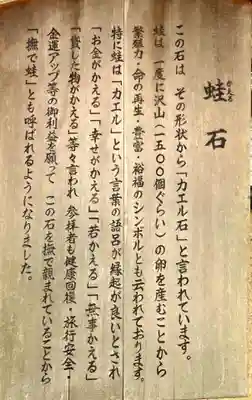 かえる
蛙石
この石は、その形状から「カエル石」と言われています。
蛙は、一度に沢山(一五〇〇個ぐらい)の卵を産むことから
繁殖力・命の再生・豊富・裕福のシンボルとも云われております。
特に蛙は「カエル」という言葉の語呂が縁起が良いとされ
「お金がかえる」「幸せがかえる」「若かえる」「無事かえる」
「貸した物がかえる」等々言われ、参拝者も健康回復・旅行安全・
金運アップ等の御利益を願って、この石を撫で親まれていることから
「撫で蛙」とも呼ばれるようになりました。